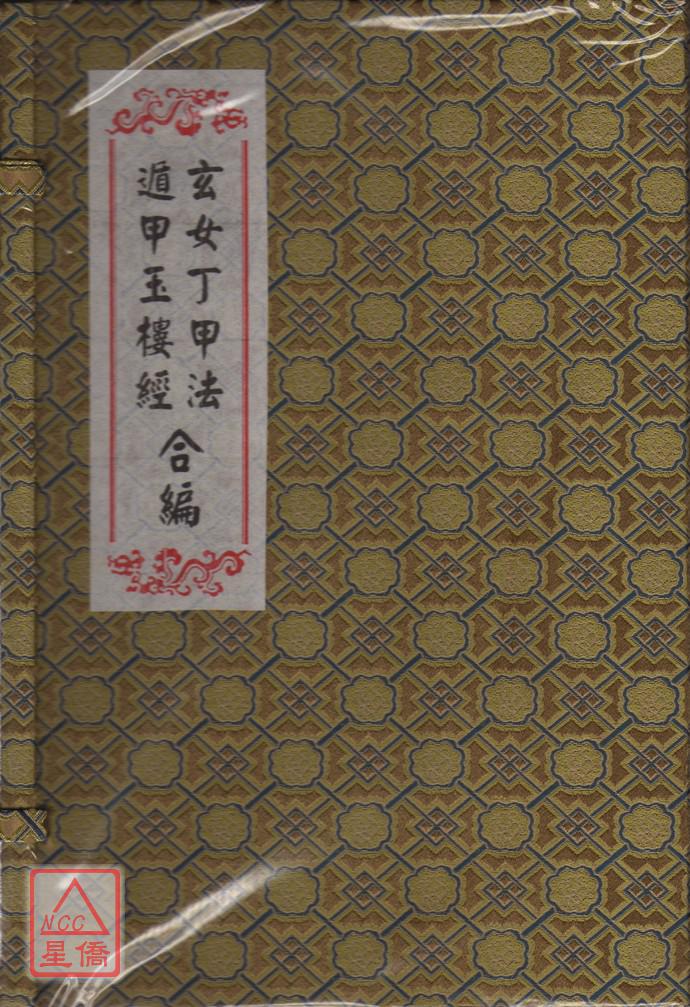 玄女丁甲法
遁甲玉樓經
合編
NCC
星僑